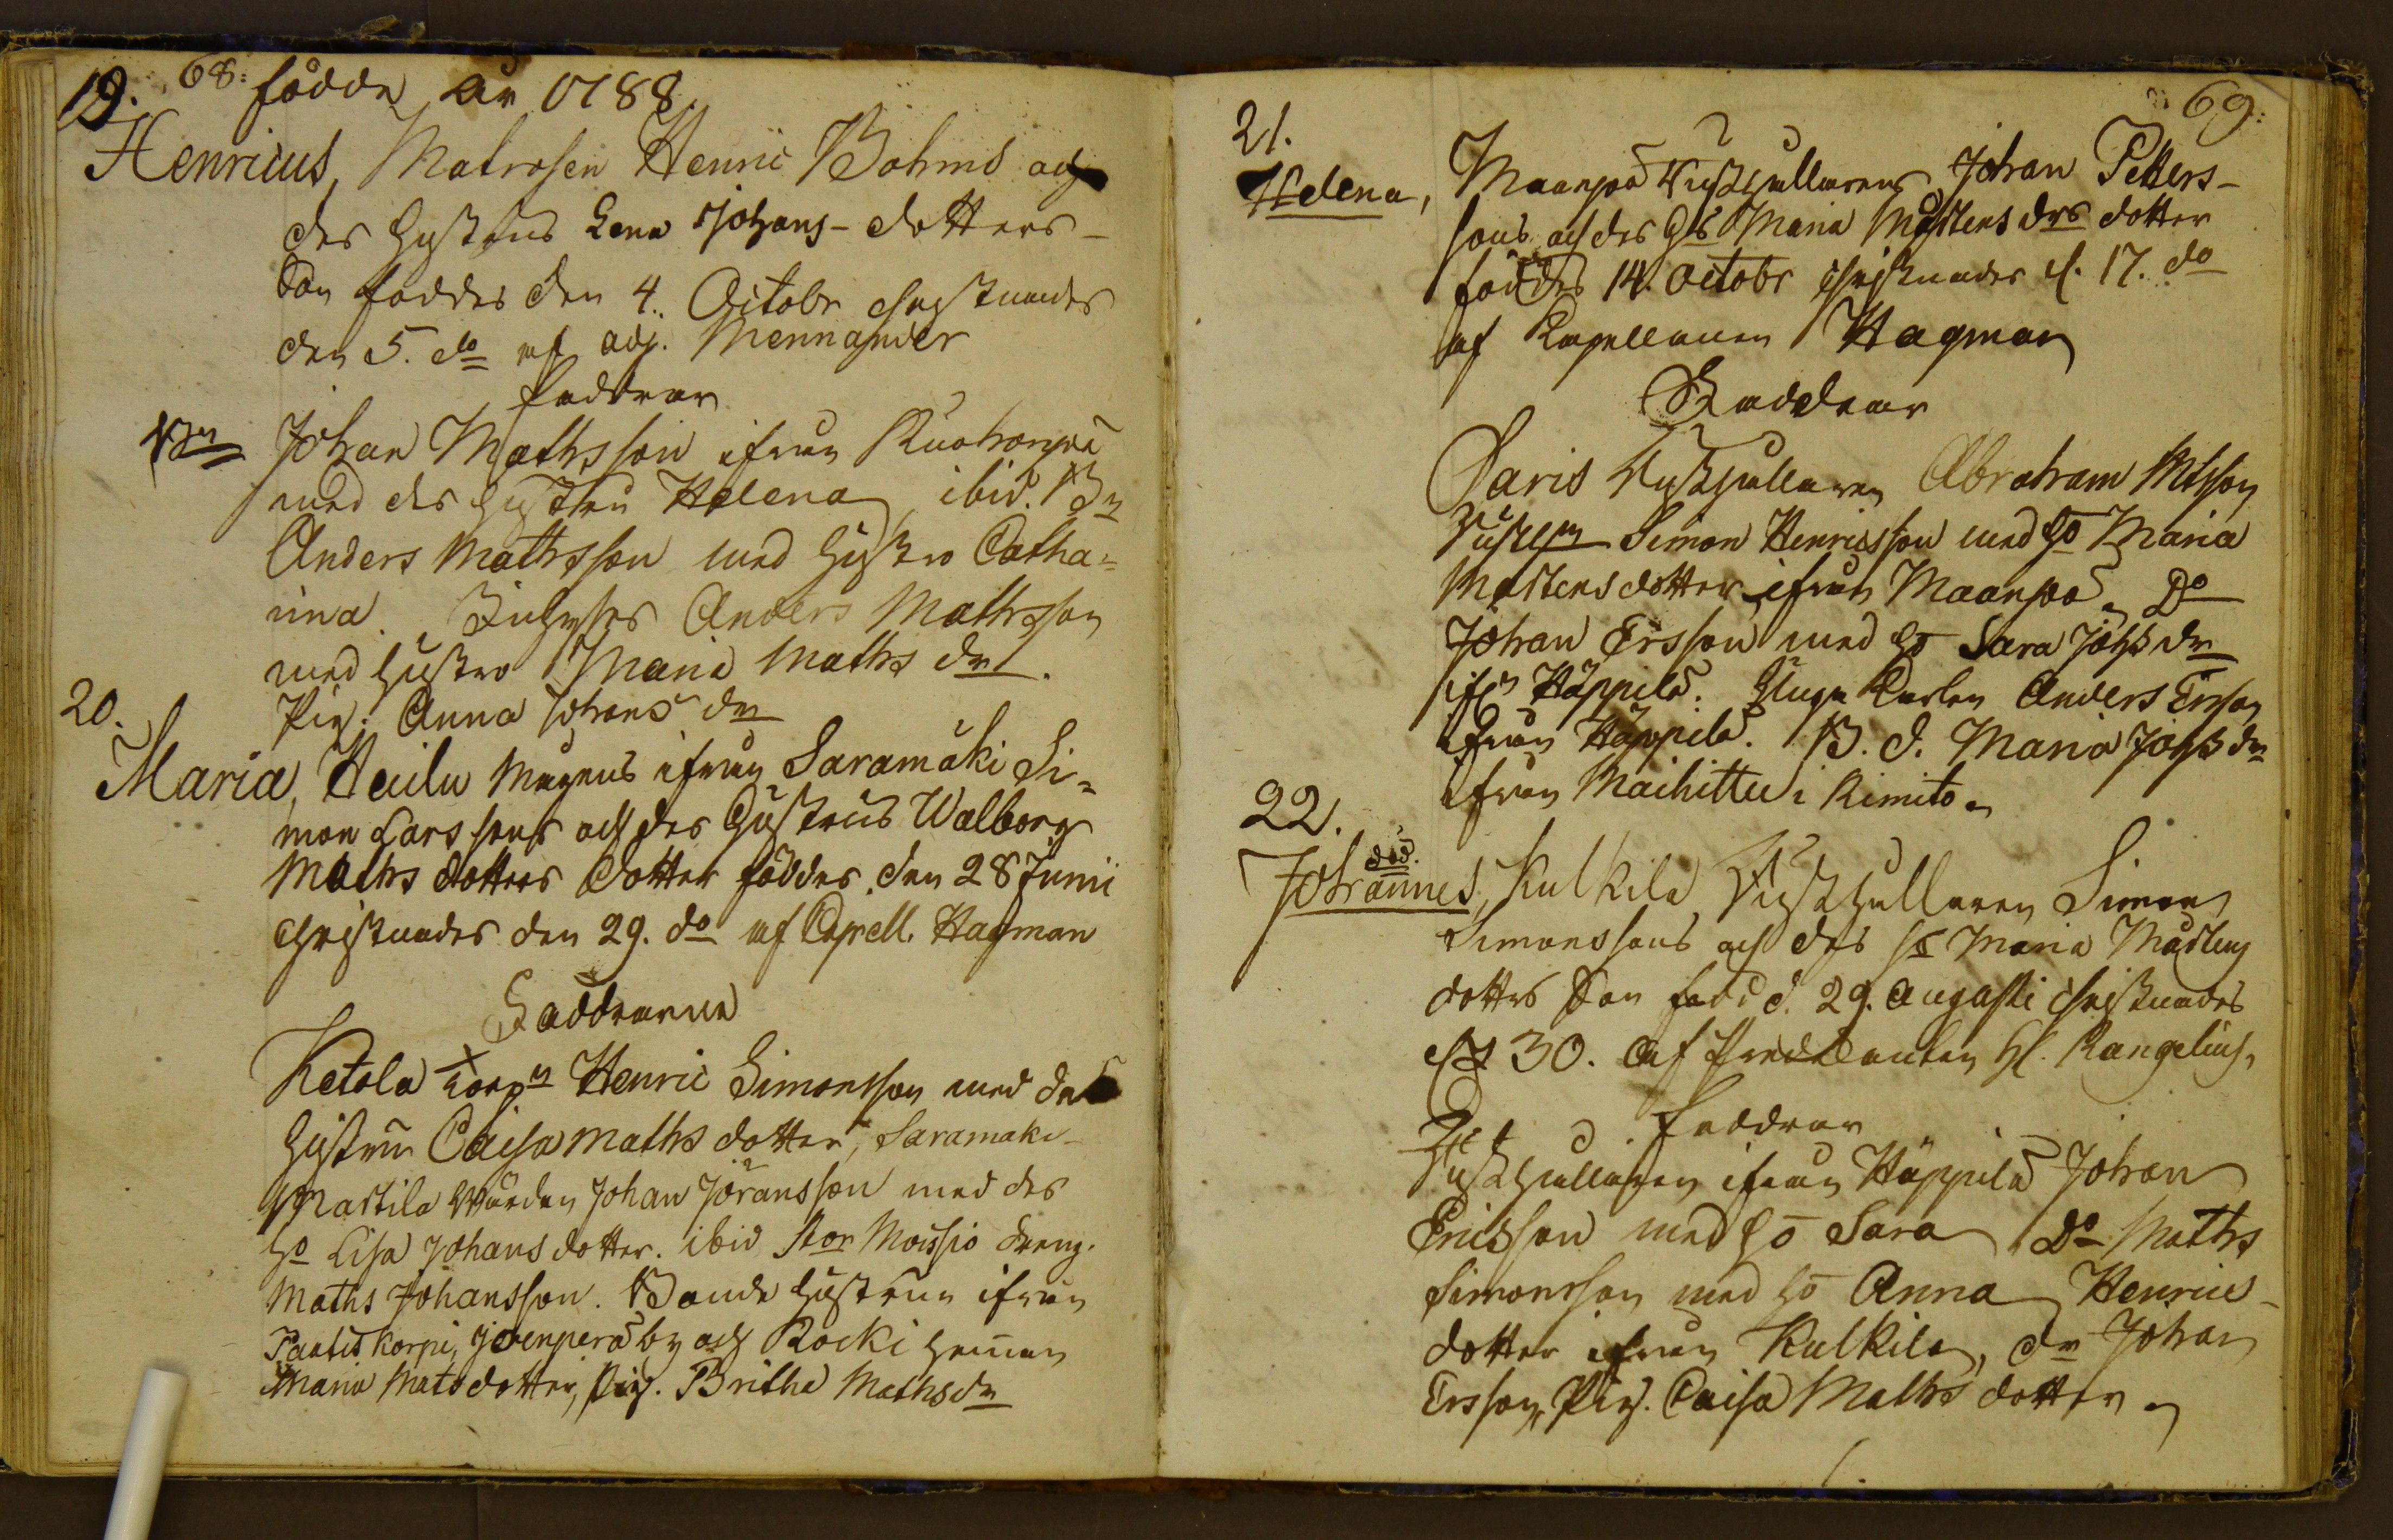 68: födde År 1788.
19.
Henricus, Matrosen Henric Bohms och
des Hustrus Lena Johans-dotters
Son föddes den 4. Octobr christnades
den 5. do af adj. Mennander
Faddrar
Bn Johan Mathsson ifrån Ruohonpä
med des hustru Helena, ibid. Bn
Anders Mathsson med hustro Catha-
rina. Inhyses Anders Mathsson
med hustro Maria Maths dr.
Pig. Anna Johans dr
20.
Maria, Heilu Mågens ifrån Saramäki Si-
mon Larssons och des Hustrus Walborg
Maths dotters dotter föddes den 28 Junii
christnades den 29. do af Capell. Hagman
Faddrarne
Ketola Torpn Henric Simonsson med des
hustru Caisa Maths dotter, Saramäki
Martila Wärden Johan Jöransson med des
ho Lisa Johans dotter. ibid Stor Moisio dreng.
Maths Johansson. Bonde hustrun ifrån
korpi, Jovenperä by och Kocki hemman
Maria Mats dotter, Pig. Britha Mathsdr
69:
21.
Helena, Maanpä Rusthållarens Johan Petters-
sons och des Hs Maria Mårtens drs dotter
föddes 14. Octobr christnades d. 17. do
af Capellanen Hagman
Faddrar
Saris Rusthållaren Abraham Mtsson
Rusthn Simon Henricsson med ho Maria
Mårtensdotter ifrån Maanpä. Do
Johan Ersson med ho Sara Johs dr
ifrn Häppilä. Unga Karlen Anders Ersson
ifrån Häppilä. B. d. Maria Johs dr
ifrån Maihittu i Kimito
22.
död.
Johannes, Kulkila Rusthållaren Simon
Simonssons och des hs Maria Mårtens
dotters Son född d. 29. Augusti christnades
d. 30. af Predikanten H. Rangelius,
Faddrar
Rusthållaren ifrån Häppilä Johan
Ericsson med ho Sara Do Maths
Simonsson med ho Anna Henrics-
dotter ifrån Kulkila, dr Johan
Ersson, Pig. Caisa Maths dotter